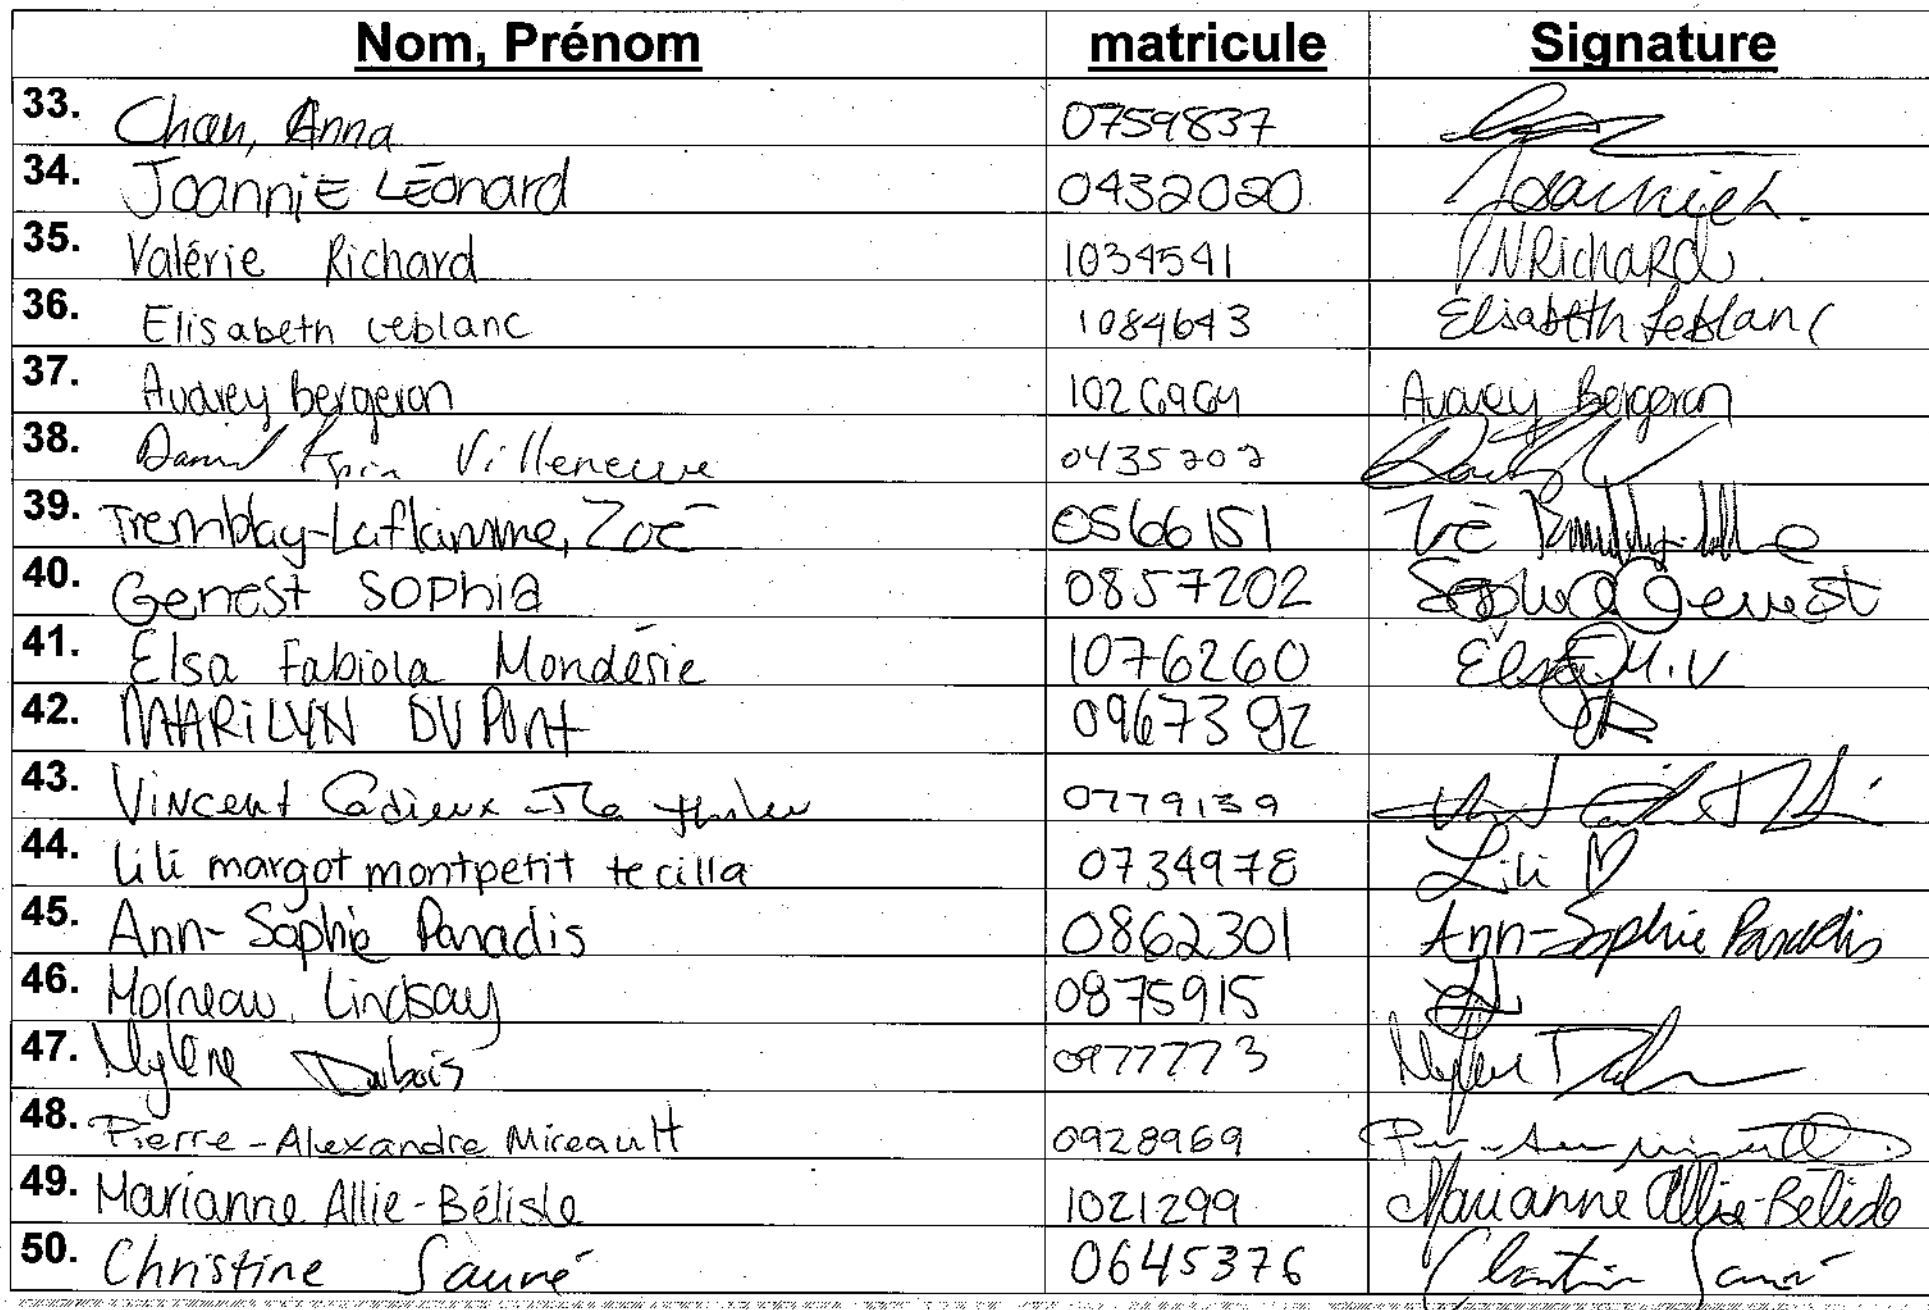 Nom, Prénom matricule Signature
33. Chan, Anna 0759837
34. Joannie Léonard 0432020 Joannie L.
35. Valérie Richard 1034541 Richard
36. Elisabeth Leblanc 1084643 Elisabeth Leblanc
37. Audrey bergeron 1026964 Audrey Bergeron
38. Villeneuve 0435707
39. Tremblay-Laflamme, Zoé 0566151 Zoé
40. Genest Sophia 0857202 Sophia Genest
41. Elsa Fabiola Mondésir 1076260 Elsa
42. MARiLYN DUPONt 0967392
43. Vincent Cadieux 0779139
44. lili margot montpetit tecilla 0734978 Lili
45. Ann-Sophie Paradis 0862301 Ann-Sophie Paradis
46. Morneau, Lindsay 0875915
47. Mylène Dubois 0977773
48. Pierre-Alexandre Mireault 0928969
49. Marianne Allie-Bélisle 1021299 Marianne Allie-Bélisle
50. Christine Sauvé 0645376